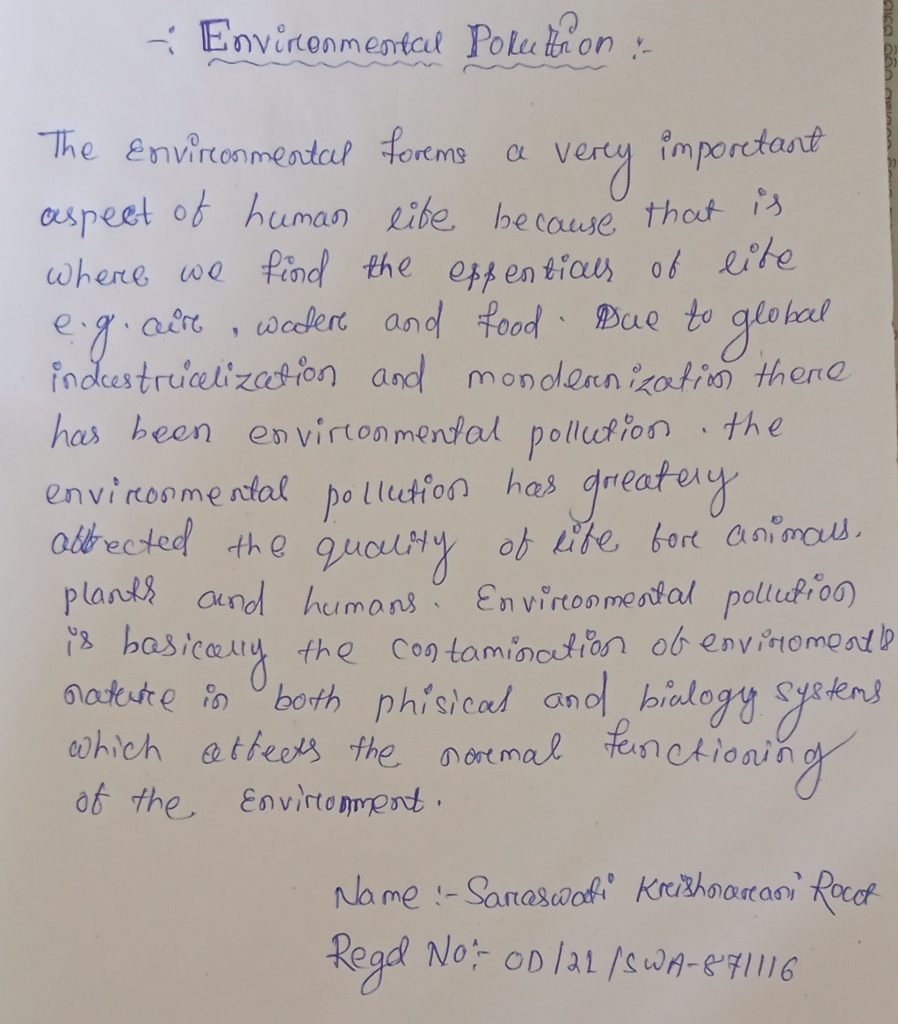 -: Environmental Polution :-
The Environmental forms a very important
aspect of human life because that is
where we find the essentials of life
e.g. air, water and food. Due to global
industrialization and mondernization there
has been environmental pollution. the
environmental pollution has greately
affected the quality of life for animals.
plants and humans. Environmental pollution
is basically the contamination of enviroment's
nature in both phisical and bialogy systems
which affects the normal functioning
of the Environment.
Name :- Saraswati Krishnarani
Regd No:- OD/21/SWA-871116